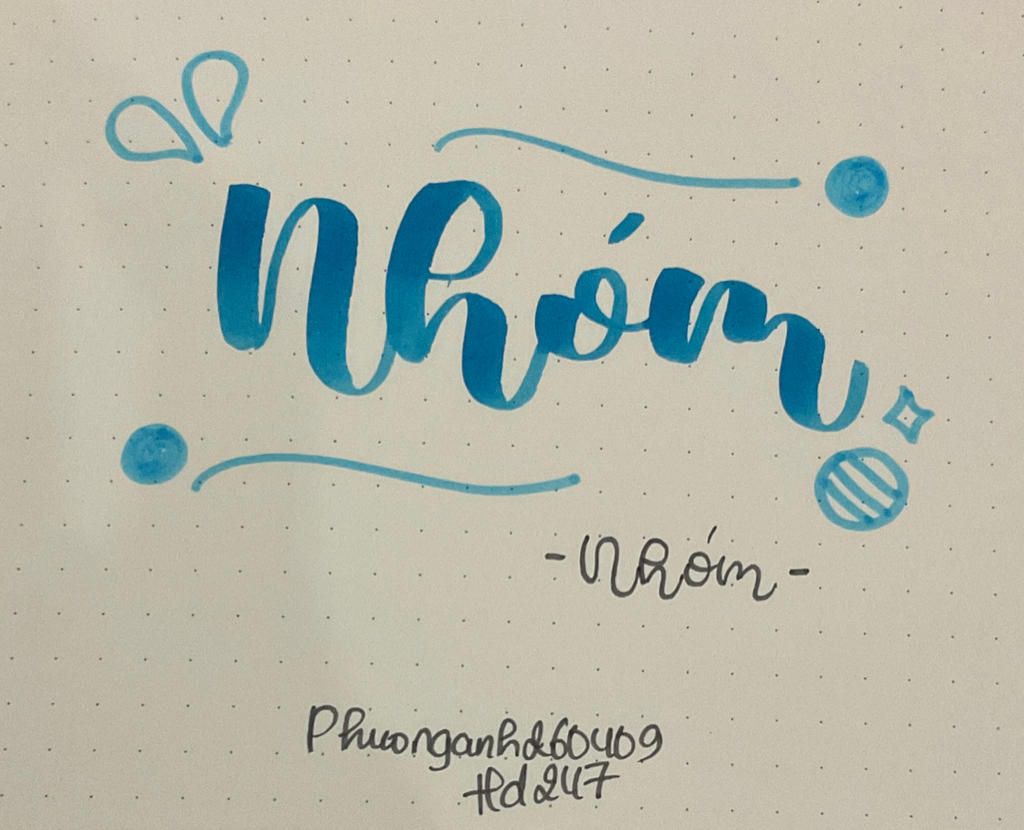 Nhóm
-Nhóm-
Phuonganhd260409
Hd247